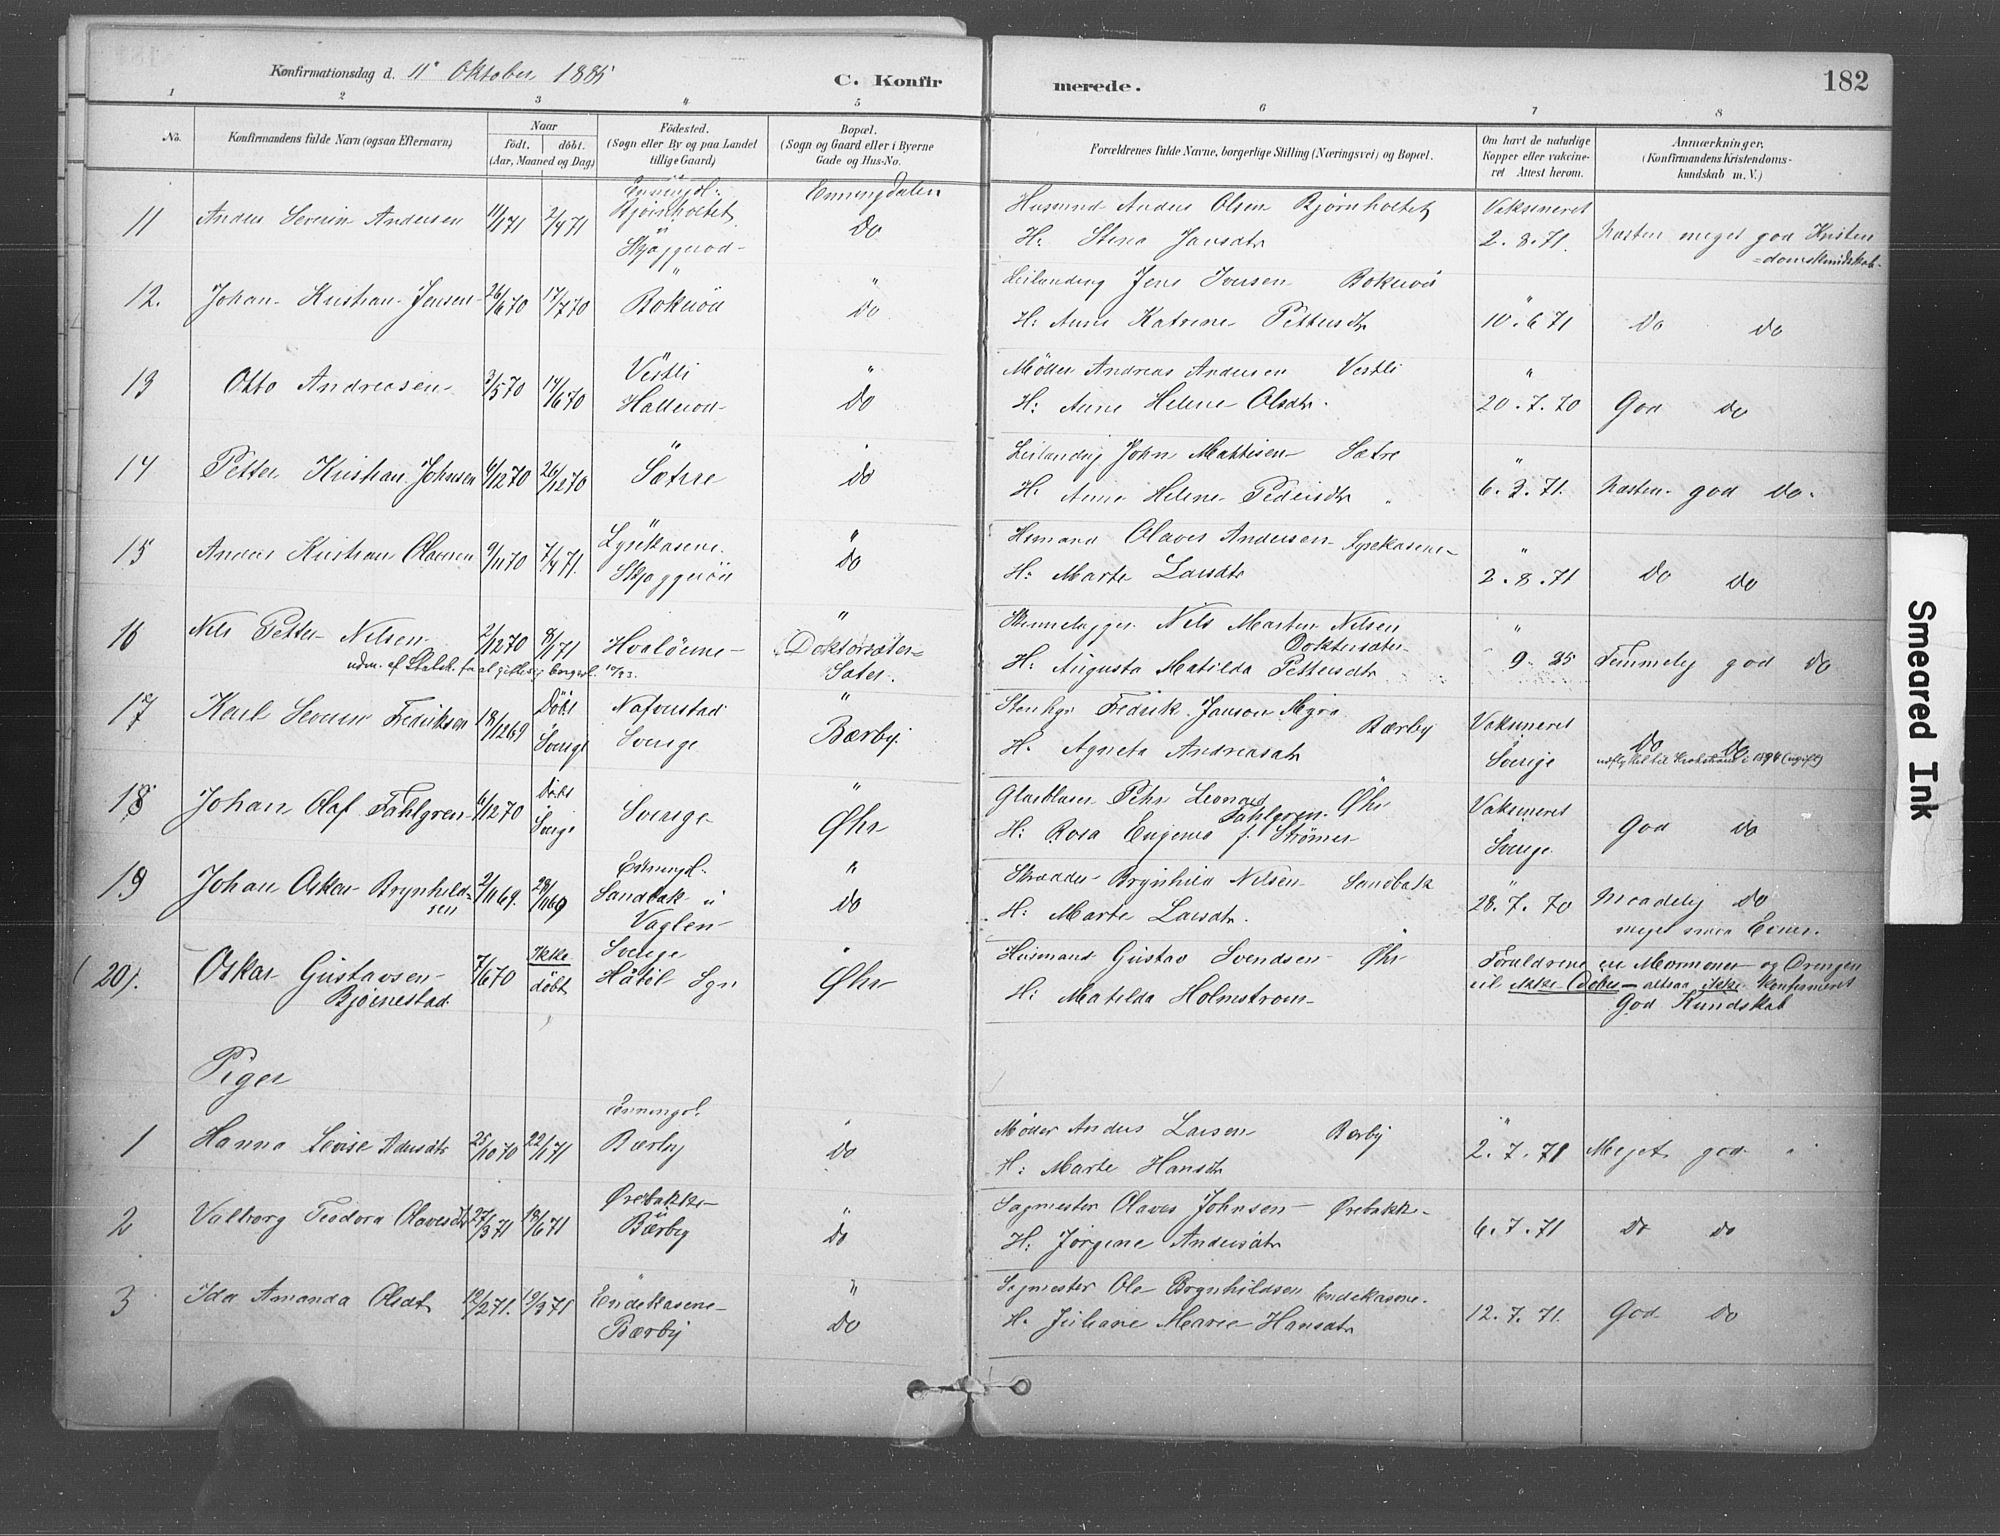 Konfirmationsdag d. 11 Oktober 1885
C. Konfir merede.
182
1 2 3 4 5 6 7 8
No.
Konfirmandens fulde Navn (ogsaa Efternavn)
Naar
födt. döbt.
(Aar, Maaned og Dag)
Födested.
(Sogn eller By og paa Landet
tillige Gaard)
Bopæl.
(Sogn og Gaard eller i Byerne
Gade og Hus-No.
Forældrenes fulde Navne, borgerlige Stilling (Næringsvei) og Bopæl.
Om havt de naturlige
Kopper eller vakcine-
ret Attest herom.
Anmærkninger.
(Konfirmandens Kristendoms-
kundskab m. V.)
11 Anders Severin Andersen 11/1 71 2/4 71 Enningdalen
Do
Husmand Anders Olsen Bjørnholtet
H: Stina Jansdtr
Vaksineret
2.8.71.
Næsten meget god Kristen
=domskundskab.
12. Johan Kristian Jensen 26/6 70 17/7 70 Do
Jens Iversen
H: Anne Katrine Pettersdtr
10.6.71 Do Do
13 Otto Andreasen 3/5 70 14/6 70 Vestli
Do
Møller Andreas Andersen Vestli
H: Anne Helene Olsdtr.
20.7.70 God Do
14 Petter Kristian Johnsen 6/12 70 26/12 70 Sætre Do
John Mattisen Sætre
H: Anne Helene Pedersdtr
6.3.71. Næsten god Do.
15 Anders Kristian Olavsen 9/11 70 7/4 71. Lysekasene
Do
Husmand Olaves Andersen Lysekasene
H: Marte Larsdtr
2.8.71 Do Do
16 Nils Petter Nilsen 2/12 70 8/1 71
Doktorsæter
Sæter.
Nils Martin Nilsen
Doktersæter
H: Augusta Matilda Pettersdtr
9. 85 Temmelig god Do
17 Severin Fredriksen 18/12 69 Döbt
Sverige
Sverige
Bærby.
Fredrik Janson Bærby
H. Agneta Andreasdtr
Vaksineret
Sverige
Do Do
18 Johan Olaf Fahlgren 6/12 70 Döbt
Sverige
Sverige Øhr
Glasblaser Pehr Leonard Øhr
Fahlgren.
H: Rosa Eugenia f. Strömer
Vaksineret
Sverige.
God Do
19 Johan Oskar Brynhild-
sen
2/11 69. 28/11 69
Sandbak u
Vaglen
Do
Skrædder Brynhild Nilsen Sandbak
H: Marte Larsdtr.
28.7.70 Maadelig Do
meget smaa Evner.
(20). Oskar Gustavsen
Bjørnestad
7/6 70 Ikke
döbt
Sverige
Øhr
Husmand Gustav Svendsen Øhr
H: Matilda Holmstrøm
Forældrene er Mormoner og Drengen
vil ikke døbes – altsaa ikke Konfirmeret
God Kundskab
Piger
1 Hanna Lovise Andersdtr 25/10 70 22/1 71 Enningd.
Bærby Do
Møller Anders Larsen Bærby
H: Marte Hansdtr
2.7.71 Meget god
2 Valborg Teodora Olavesdtr 27/3 71 18/6 71 Ørebakke
u
Bærby
Do
Sagmester Olaves Johnsen Ørebakke
H: Jørgine Andersdtr
6.7.71 Do Do
3 Ida Amanda Olsdt 12/2 71. 19/3 71 Endekasene
Bærby
Do
Sagmester Ole Brynhildsen Endekasene.
H. Juliane Marie Hansdtr
12.7.71. God Do
Smeared Ink